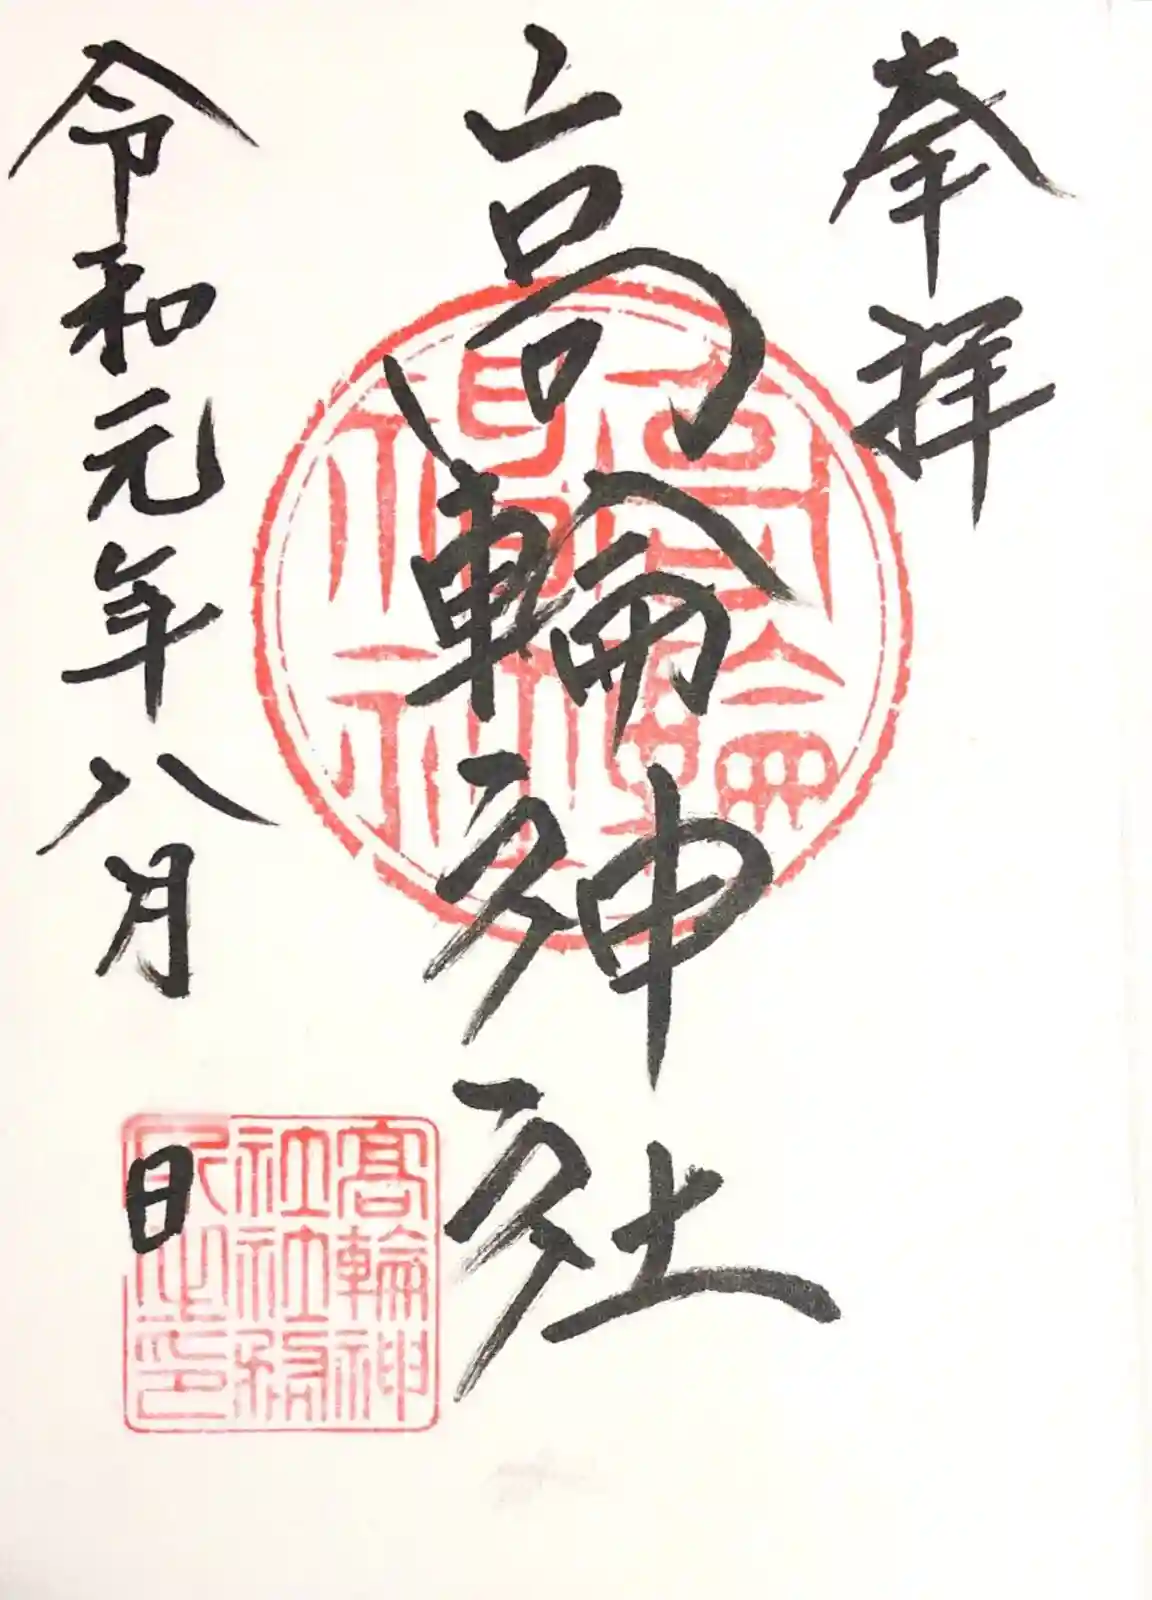 奉拝
高輪神社
令和元年八月 日
高輪神社
高輪神
社社務
所之印